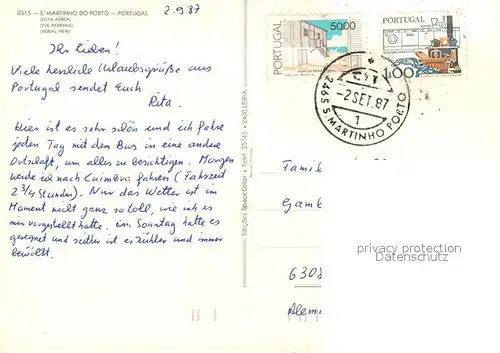 0315 - S. MARTINHO DO PORTO - PORTUGAL
(VISTA AEREA)
(VUE AERIENNE)
(AERIAL VIEW)
2.9.87
Ihr Lieben!
Viele herzliche Urlaubsgrüße aus
Portugal sendet Euch
Rita.
Hier ist es sehr schön und ich fahre
jeden Tag mit dem Bus in eine andere
Ortschaft, um alles zu besichtigen. Morgen
werde ich nach Coimbra fahren (Fahrzeit
2 3/4 Stunden). Nur das Wetter ist im
Moment nicht ganz so toll, wie ich es
mir vorgestellt hatte. Am Sonntag hatte es
geregnet und seither ist es kühler und immer
bewölkt.
Edições SpaceColor • Telef. 25745 • 2400 LEIRIA
PORTUGAL
5000
PORTUGAL
1.00
CTT
-2SET.87
1
2465 S. MARTINHO PORTO
Famil
Gamb
privacy protection
Datenschutz
6308
Alem